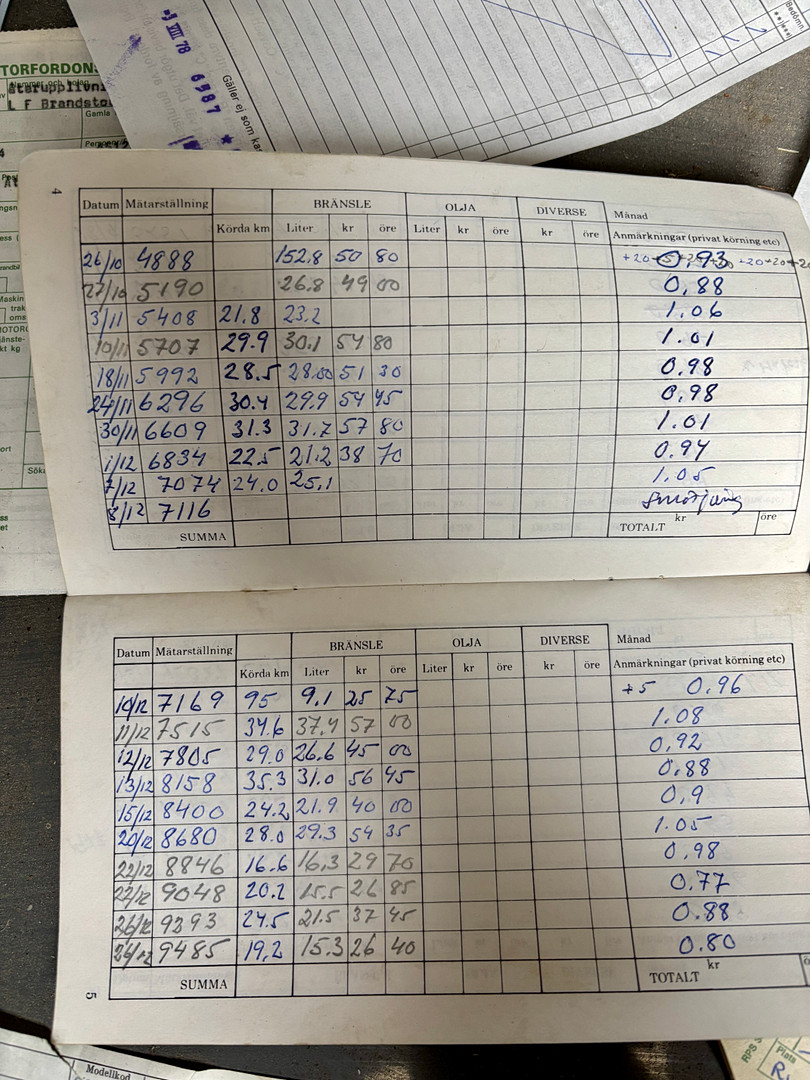 -3 VIII 78 6587 *
Gäller ej som kas
TORFORDONS
Nammer och bolag
återupplivni
L F Brandsto
Gamla
4
Datum Mätarställning Körda km BRÄNSLE Liter kr öre OLJA Liter kr öre DIVERSE kr öre Månad
Anmärkningar (privat körning etc)
26/10 4888 152.8 50 80 0,93
27/10 5190 26.8 49 00 0,88
3/11 5408 21.8 23.2 1.06
10/11 5707 29.9 30.1 54 80 1.01
18/11 5992 28.5 28.00 51 30 0.98
24/11 6296 30.4 29.9 54 45 0,98
30/11 6609 31.3 31.7 57 80 1.01
1/12 6834 22.5 21.2 38 70 0.94
7/12 7074 24.0 25.1 1.05
8/12 7116
SUMMA TOTALT kr öre
Datum Mätarställning Körda km BRÄNSLE Liter kr öre OLJA Liter kr öre DIVERSE kr öre Månad
Anmärkningar (privat körning etc)
10/12 7169 95 9.1 25 75 +5 0.96
11/12 7515 34.6 37.4 57 00 1.08
12/12 7805 29.0 26.6 45 00 0,92
13/12 8158 35.3 31.0 56 45 0,88
15/12 8400 24.2 21.9 40 00 0,9
20/12 8680 28.0 29.3 54 35 1.05
22/12 8846 16.6 16,3 29 70 0,98
22/12 9048 20.2 15.5 26 85 0.77
26/12 9293 24.5 21.5 37 45 0.88
26/12 9485 19,2 15.3 26 40 0.80
SUMMA TOTALT kr
5
Modellkod
Plats